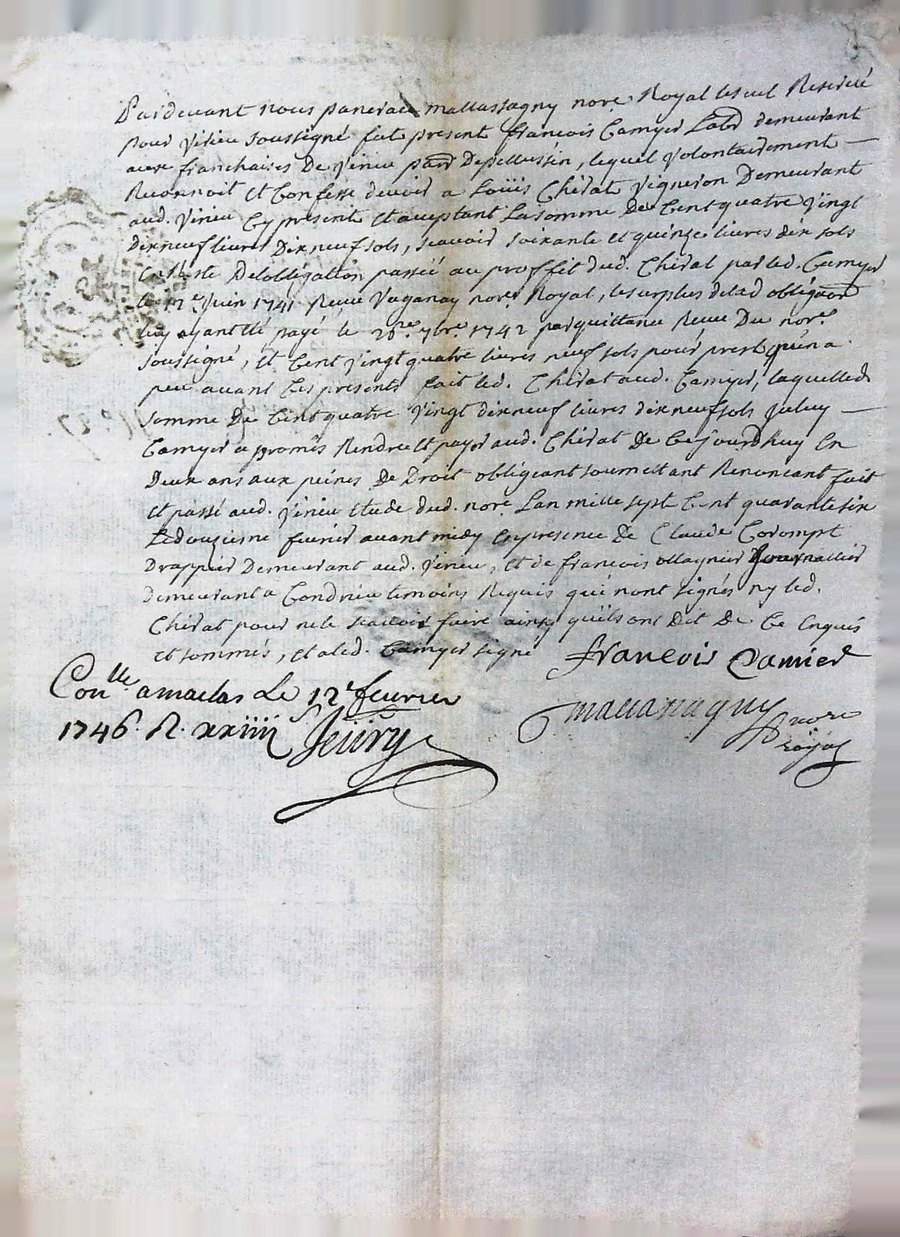 Pardevant nous pancrace mallassagny nore Royal le seul Reservé
pour virieu soussigné fut present francois Camyer Labr demeurant
aux franchises De virieu parr De pellussin, lequel volontairement
Reconnoit et Confesse devoir a Loüis Chirat vigneron Demeurant
aud. virieu Cy present et acceptant La somme De Cent quatre vingt
dixneuf livres Dixneuf sols, scavoir soixante et quinze livres dix sols
De lobligation passée au proffit dud. Chirat par led. Camyer
le 11e Juin 1741 Receue Vaganay nore Royal, le surplus de lad obligaon
luy ayant été payé le 28me 7bre 1742 par quittance Receue Du nore
soussigné, et Cent vingt quatre livres neuf sols pour prest quen a
peu avant Ces presentes fait led. Chirat aud. Camyer, laquelled.
somme De Cent quatre vingt dixneuf livres dixneuf sols Jceluy
Camyer a promis Rendre et payer aud. Chirat De Cejourdhuy En
Deux ans aux peines De Droit obligeant soumettant Renonceant fait
et passé aud. virieu Etude dud. nore Lan mille sept Cent quarante six
Le douzieme fevrier avant midy En presence De Claude Corompt
Drappier Demeurant aud. virieu, et de francois ollagnier Journallier
demeurant a Condrieu temoins Requis qui nont signés ny led.
Chirat pour ne le scavoir faire ainsy quils ont Dit De Ce Enquis
et sommés, et a led. Camyer signé francois Camier
Conlle a maclas Le 12e fevrier
1746. R. xxiiii s
mallassagny nore
royal